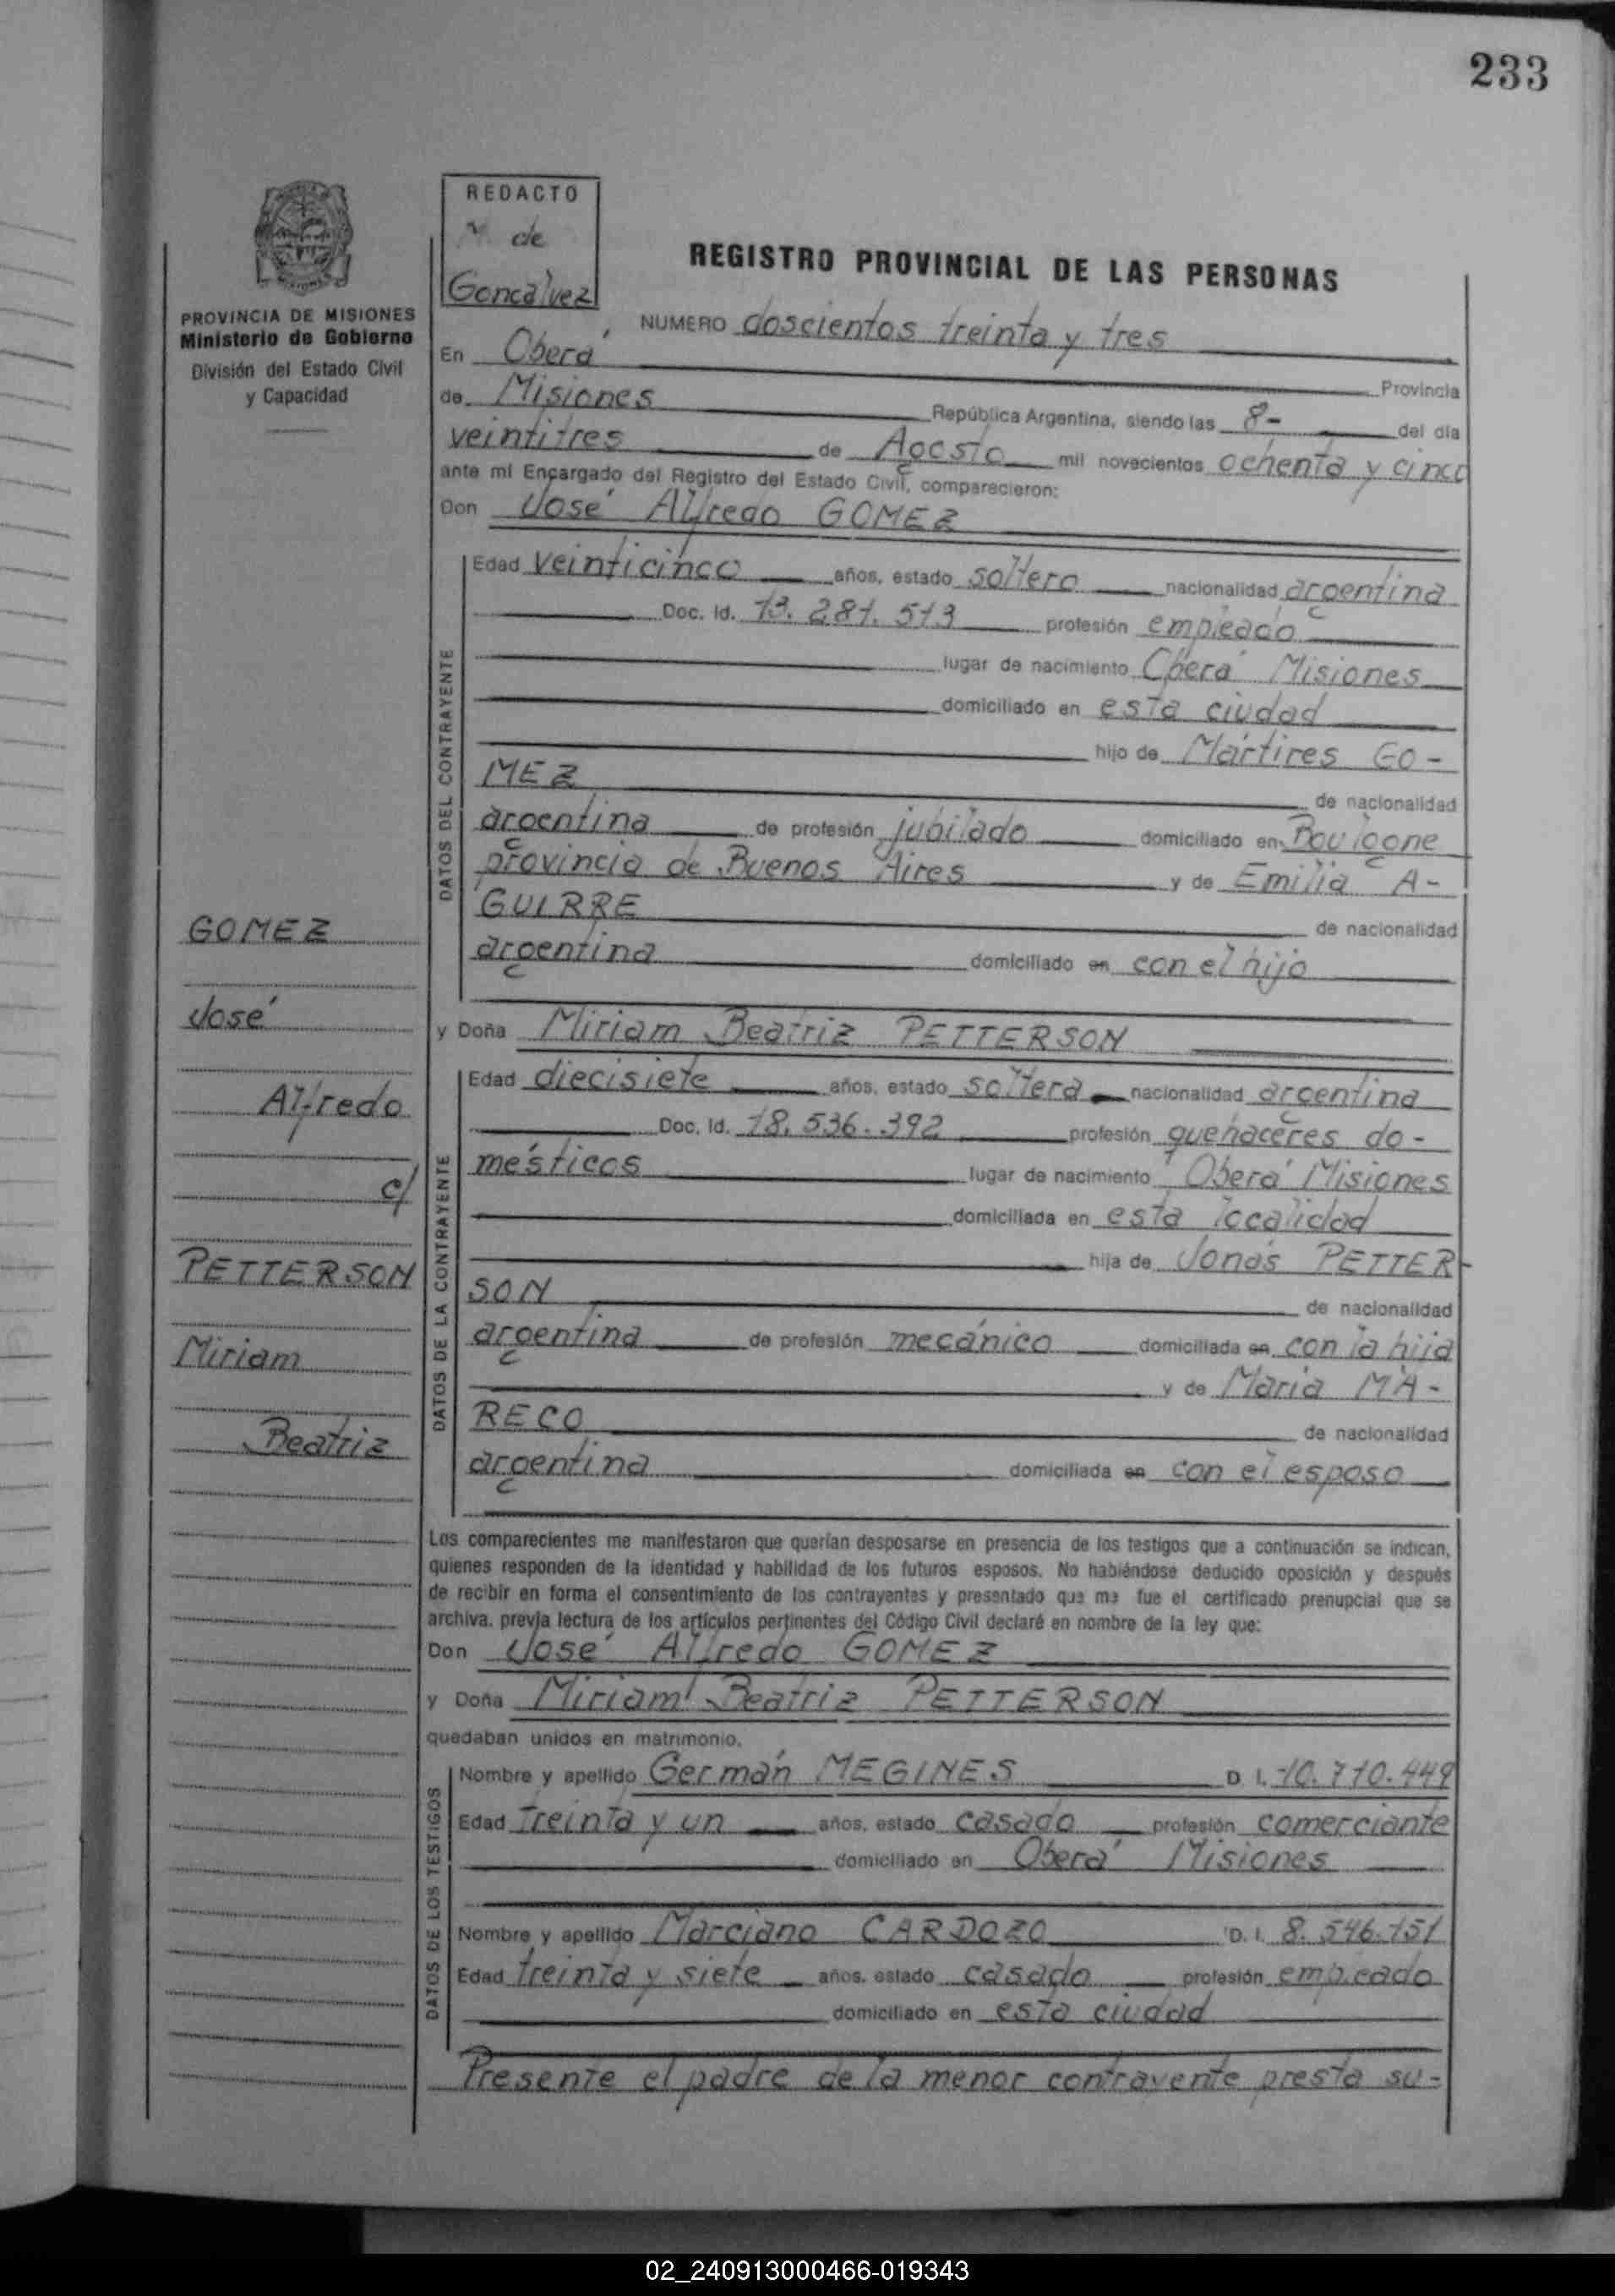 233
REDACTO
de
Goncalvez
REGISTRO PROVINCIAL DE LAS PERSONAS
PROVINCIA DE MISIONES
Ministerio de Gobierno
División del Estado Civil
y Capacidad
NUMERO doscientos treinta y tres
En Oberá Provincia
de Misiones República Argentina, siendo las 8- del día
veintitres de Agosto mil novecientos ochenta y cinco
ante mí Encargado del Registro del Estado Civil, comparecieron:
Don José Alfredo GOMEZ
DATOS DEL CONTRAYENTE
Edad veinticinco años, estado soltero nacionalidad argentina
Doc. Id. 13.281.513 profesión empleado
lugar de nacimiento Oberá Misiones
domiciliado en esta ciudad
hijo de Mártires GO-
MEZ de nacionalidad
argentina de profesión jubilado domiciliado en Boulogne
provincia de Buenos Aires y de Emilia A-
GUIRRE de nacionalidad
argentina domiciliado en con el hijo
y Doña Miriam Beatriz PETTERSON
DATOS DE LA CONTRAYENTE
Edad diecisiete años, estado soltera nacionalidad argentina
Doc. Id. 18.536.392 profesión quehaceres do-
mésticos lugar de nacimiento Oberá Misiones
domiciliada en esta localidad
hija de Jonás PETTER-
SON de nacionalidad
argentina de profesión mecánico domiciliada en con la hija
y de Maria MA-
RECO de nacionalidad
argentina domiciliada en con el esposo
GOMEZ
José
Alfredo
c/
PETTERSON
Miriam
Beatriz
Los comparecientes me manifestaron que querían desposarse en presencia de los testigos que a continuación se indican,
quienes responden de la identidad y habilidad de los futuros esposos. No habiéndose deducido oposición y después
de recibir en forma el consentimiento de los contrayentes y presentado que me fue el certificado prenupcial que se
archiva. previa lectura de los artículos pertinentes del Código Civil declaré en nombre de la ley que:
Don José Alfredo GOMEZ
y Doña Miriam Beatriz PETTERSON
quedaban unidos en matrimonio.
DATOS DE LOS TESTIGOS
Nombre y apellido Germán MEGINES D. I. 10.710.449
Edad treinta y un años, estado casado profesión comerciante
domiciliado en Oberá Misiones
Nombre y apellido Marciano CARDOZO D. I. 8.546.151
Edad treinta y siete años, estado casado profesión empleado
domiciliado en esta ciudad
Presente el padre de la menor contrayente presta su-
02_240913000466-019343